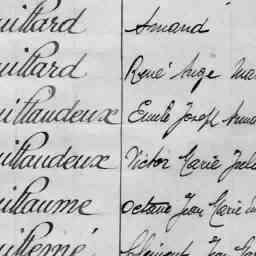 uillard Armand
uillard René Ange Mar
uillaudeux Emile Joseph Arman
uillaudeux Victor Marie Jul
uillaume Octave Jean Marie
uillemé Clément Jean